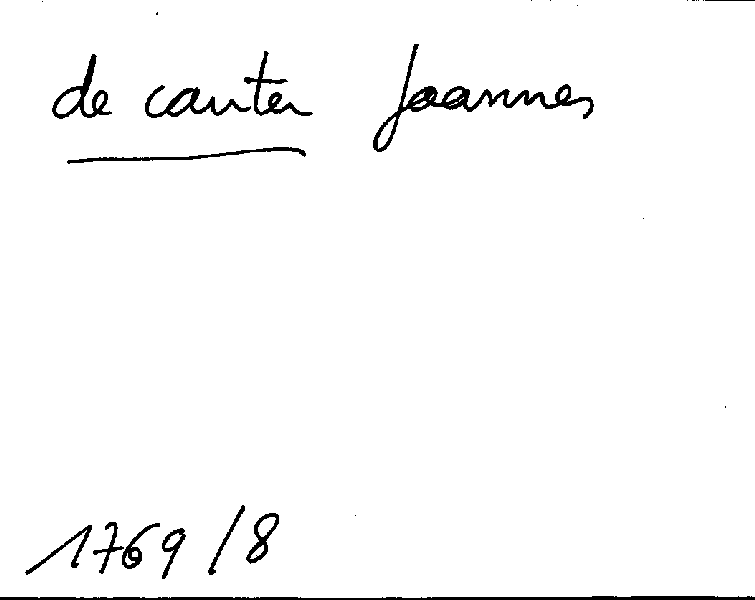 de cauter Joannes
1769/8